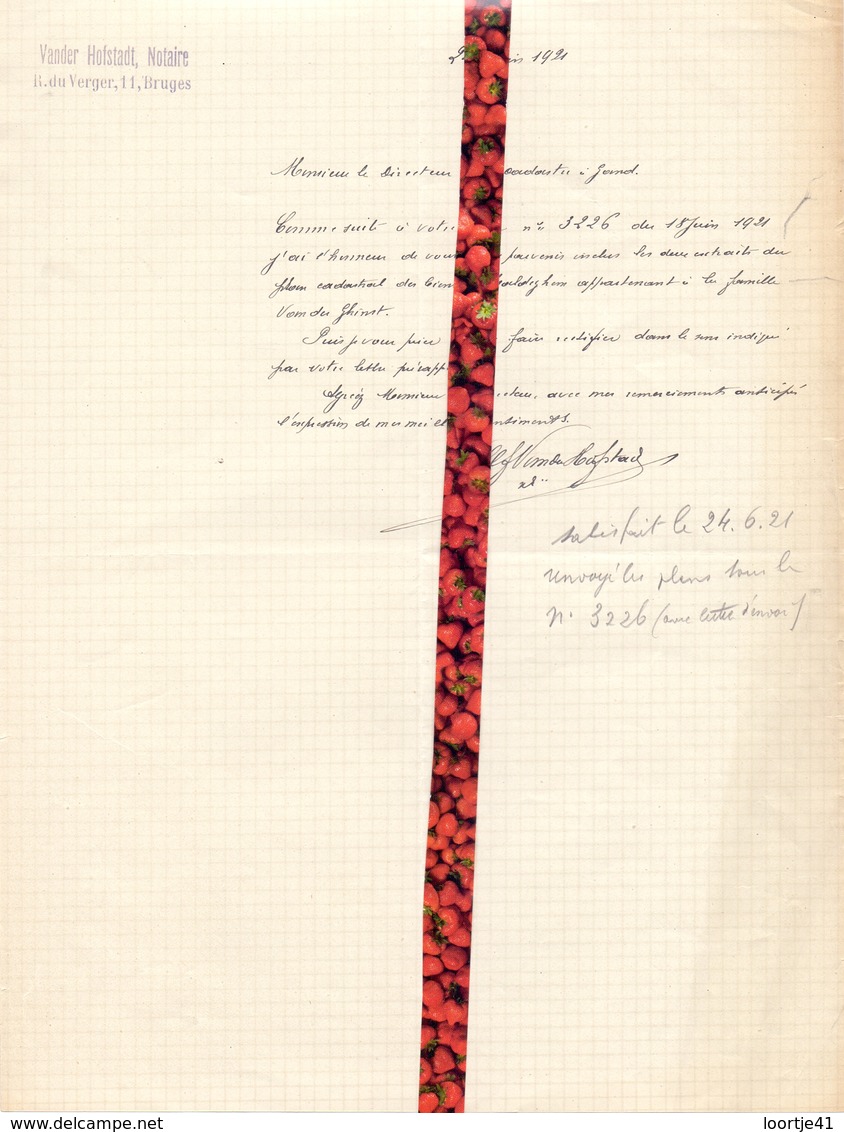 Vander Hofstadt, Notaire
R. du Verger, 11, Bruges
2 in 1921
Monsieur le Directeur cadastre à Gand.
Comme suit à votre n° 3226 du 18 Juin 1921
j'ai l'honneur de vous parvenir inclus les deux extraits du
plan cadastral des biens appartenant à la famille
Van der Ghinst.
Puis je vous prier faire rectifier dans le sens indiqué
par votre lettre
Agréez Monsieur cteur, avec mes remerciements anticipés
l'expression de mes meil ntiments.
Vander Hofstadt
satisfait le 24.6.21
renvoyé les plans sous le
N° 3226 (avec lettre d'envoi)
www.delcampe.net
loortje41